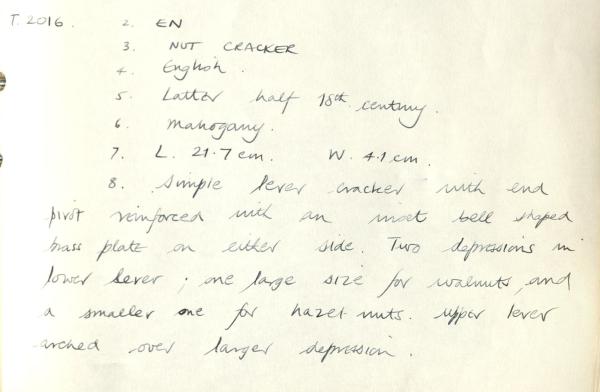 T. 2016. 2. EN
3. NUT CRACKER
4. English.
5. Latter half 18th century.
6. Mahogany.
7. L. 21.7 cm. W. 4.1 cm.
8. Simple lever cracker with end
pivot reinforced with an inset bell shaped
brass plate on either side. Two depressions in
lower lever; one large size for walnuts, and
a smaller one for hazel nuts. Upper lever
arched over larger depression.